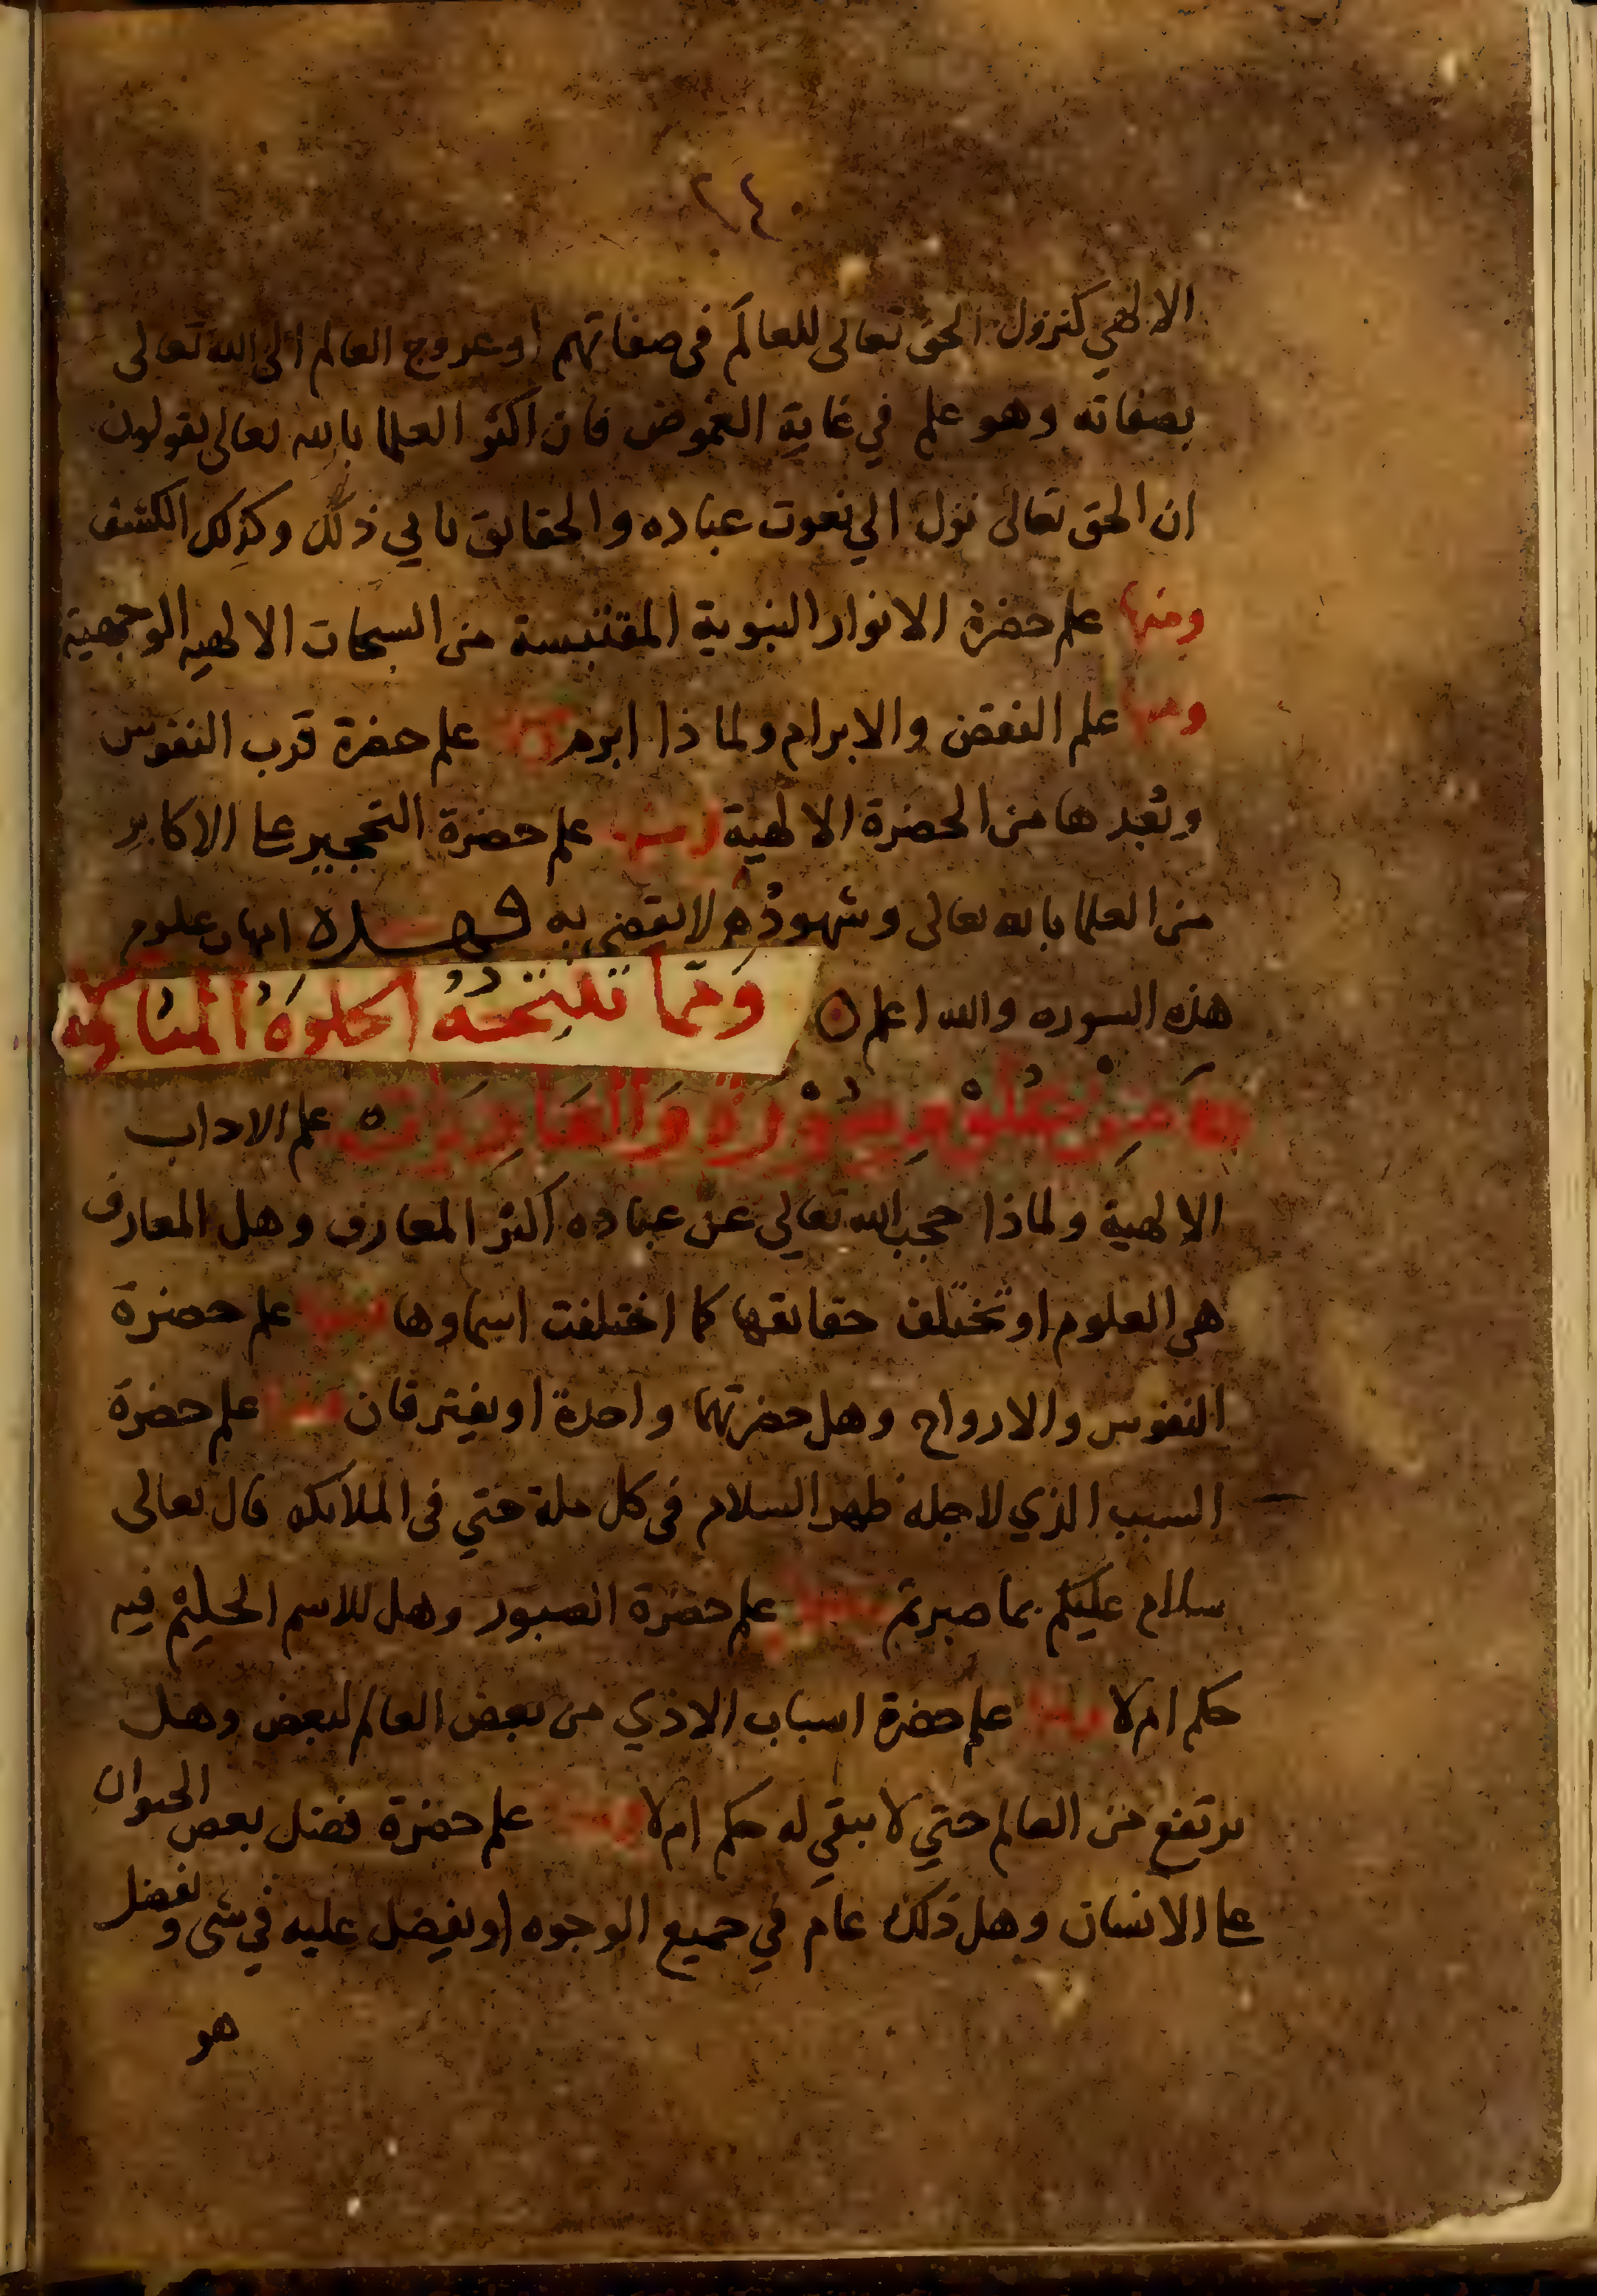 ٢٤٠
الالهي كنزول الحق تعالى للعالم فى صفاتهم او عروج العالم الى الله تعالى
بصفاته وهو علم في غاية الغموض فان اكثر العلما بالله تعالى يقولون
ان الحق تعالى نزل الي نعوت عباده والحقايق تابي ذلك وكذلك الكشف
ومنها علم حضرة الانوار النبوية المقتبسة من السبحات الالهيه الوجهية
ومنها علم النقض والابرام ولماذا ابرم ومنها علم حضرة قرب النفوس
وبُعدها من الحضرة الالهية ومنها علم حضرة التحجير على الاكابر
من العلما بالله تعالى وشهودهم لا يقضي به فهذه امهات علوم
هذه السوره والله اعلم ومما تنتجه الخلوة المباركه
من علوم سورة والعاديات ه علم الاداب
الالهية ولماذا حجب الله تعالي عن عباده اكثر المعارف وهل المعارف
هى العلوم او تختلف حقايقها كما اختلفت اسماوها ومنها علم حضرة
النفوس والارواح وهل حضرتهما واحدة او يفترقان ومنها علم حضرة
السبب الذي لاجله ظهر السلام فى كل ملة حتي فى الملايكه قال تعالى
سلام عليكم بما صبرتم ومنها علم حضرة الصبور وهل للاسم الحليم فيه
حكم ام لا ومنها علم حضرة اسباب الاذي من بعض العالم لبعض وهل
يرتفع من العالم حتي لا يبقي له حكم ام لا ومنها علم حضرة فضل بعض الحيوان
على الانسان وهل ذلك عام في جميع الوجوه او يفضل عليه في شى ويفضل
هو